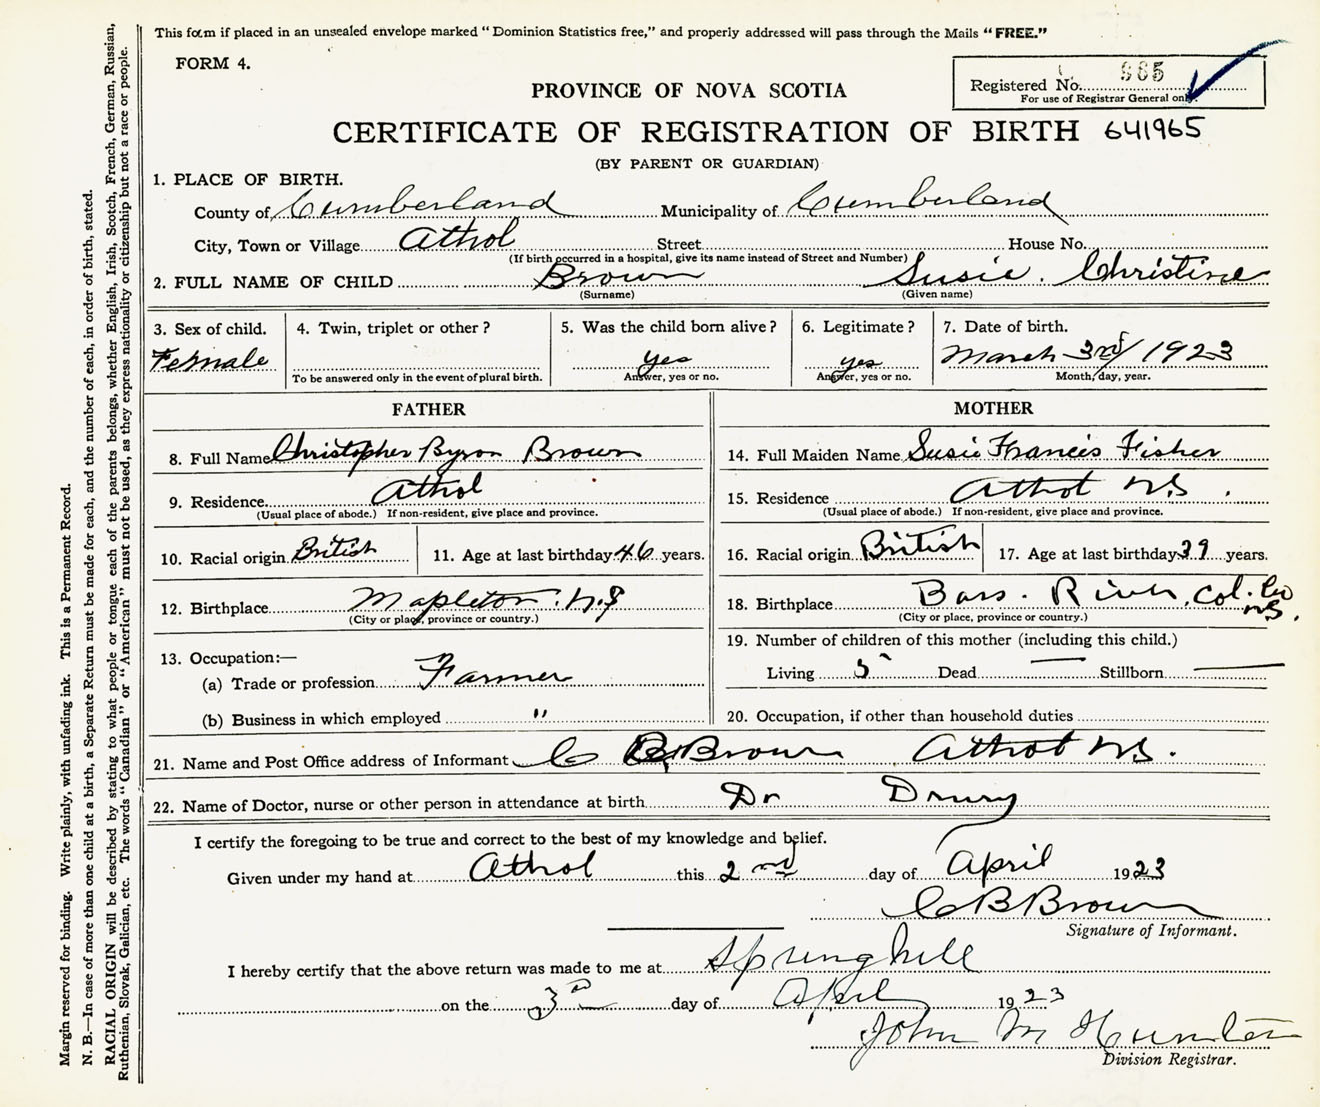 This form if placed in an unsealed envelope marked "Dominion Statistics free," and properly addressed will pass through the Mails "FREE."
FORM 4.
Registered No. 965
For use of Registrar General only.
PROVINCE OF NOVA SCOTIA
CERTIFICATE OF REGISTRATION OF BIRTH 641965
(BY PARENT OR GUARDIAN)
1. PLACE OF BIRTH.
County of Cumberland Municipality of Cumberland
City, Town or Village Athol Street House No.
(If birth occurred in a hospital, give its name instead of Street and Number)
2. FULL NAME OF CHILD Brown Susie. Christine
(Surname) (Given name)
3. Sex of child. 4. Twin, triplet or other? 5. Was the child born alive? 6. Legitimate? 7. Date of birth.
Female yes yes March 3rd/1923
To be answered only in the event of plural birth. Answer, yes or no. Answer, yes or no. Month, day, year.
FATHER
8. Full Name Christopher Byron Brown
9. Residence Athol
(Usual place of abode.) If non-resident, give place and province.
10. Racial origin British 11. Age at last birthday 46 years.
12. Birthplace Mapleton. N.S
(City or place, province or country.)
13. Occupation:—
(a) Trade or profession Farmer
(b) Business in which employed "
MOTHER
14. Full Maiden Name Susie Francis Fisher
15. Residence Athol N.S.
(Usual place of abode.) If non-resident, give place and province.
16. Racial origin British 17. Age at last birthday 39 years.
18. Birthplace Bass. River, Col. Co N.S.
(City or place, province or country.)
19. Number of children of this mother (including this child.)
Living 5 Dead — Stillborn —
20. Occupation, if other than household duties
21. Name and Post Office address of Informant C B Brown Athol N.S.
22. Name of Doctor, nurse or other person in attendance at birth Dr Drury
I certify the foregoing to be true and correct to the best of my knowledge and belief.
Given under my hand at Athol this 2nd day of April 1923
C B Brown
Signature of Informant.
I hereby certify that the above return was made to me at Springhill
on the 3rd day of April 1923
John M Hunter
Division Registrar.
Margin reserved for binding. Write plainly, with unfading ink. This is a Permanent Record.
N. B.—In case of more than one child at a birth, a Separate Return must be made for each, and the number of each, in order of birth, stated.
RACIAL ORIGIN will be described by stating to what people or tongue each of the parents belongs, whether English, Irish, Scotch, French, German, Russian,
Ruthenian, Slovak, Galician, etc. The words "Canadian" or "American" must not be used, as they express nationality or citizenship but not a race or people.